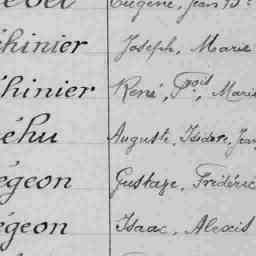 Eugène, Jean B.te
chinier Joseph, Marie
chinier René, Fçois, Marie
éhu Auguste, Isidore, Jean
égeon Gustave, Frédéric
égeon Isaac, Alexis